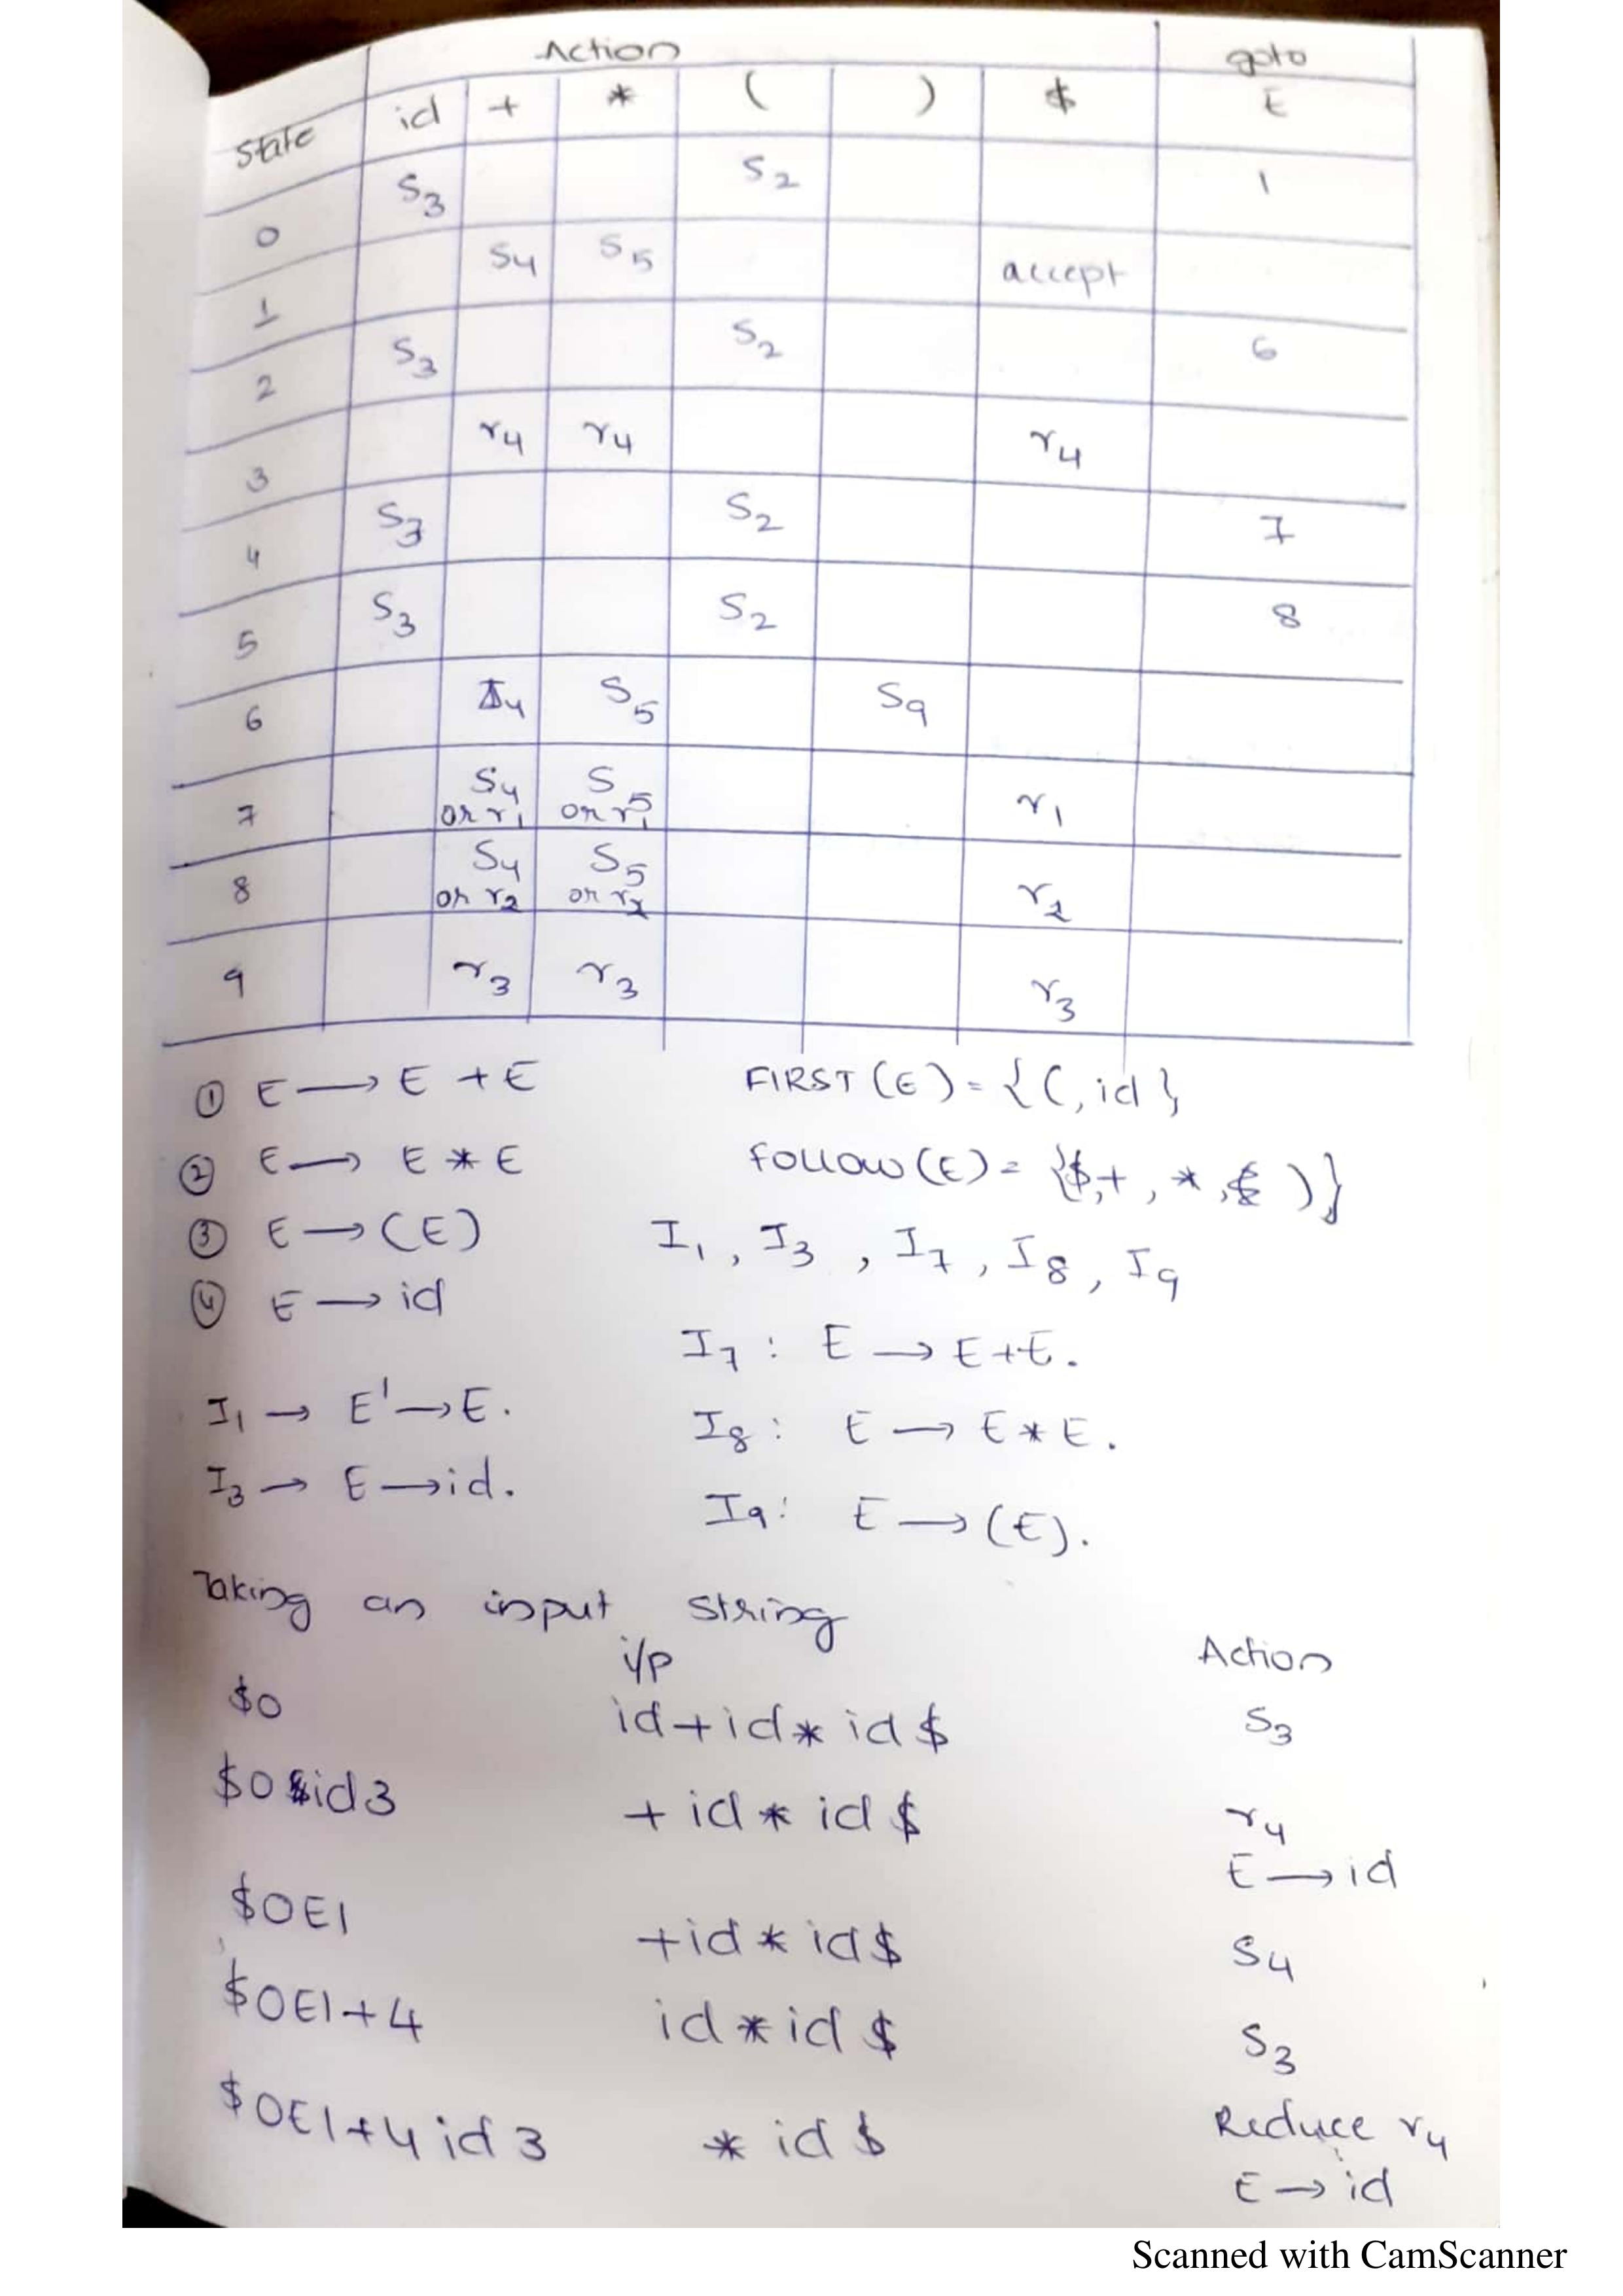 Action goto
State id + * ( ) $ E
0 S3 S2 1
1 S4 S5 accept
2 S3 S2 6
3 r4 r4 r4
4 S3 S2 7
5 S3 S2 8
6 S4 S5 S9
7 S4 or r1 S5 or r1 r1
8 S4 or r2 S5 or r2 r2
9 r3 r3 r3
① E → E + E FIRST (E) = {(, id}
② E → E * E Follow (E) = {$, +, *, )}
③ E → (E) I1, I3, I7, I8, I9
④ E → id
I7 : E → E+E.
I1 → E' → E.
I8 : E → E * E.
I3 → E → id.
I9 : E → (E).
Taking an input string
i/p Action
$0 id+id* id $ S3
$0 id3 + id * id $ r4
E → id
$0E1 +id * id $ S4
$0E1+4 id * id $ S3
$0E1+4 id 3 * id $ Reduce r4
E → id
Scanned with CamScanner